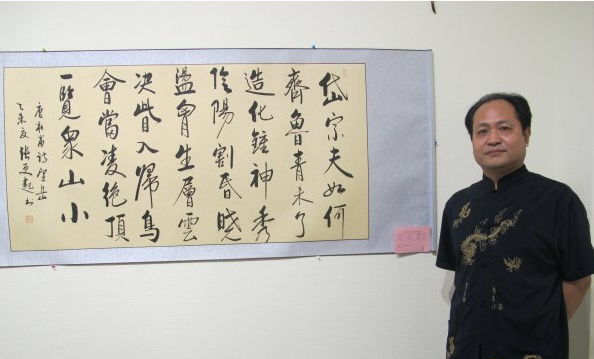 岱宗夫如何
齊魯青未了
造化鐘神秀
陰陽割昏曉
盪胷生層雲
決眥入歸鳥
會當凌絕頂
一覽衆山小
唐杜甫詩望岳
乙未夏張